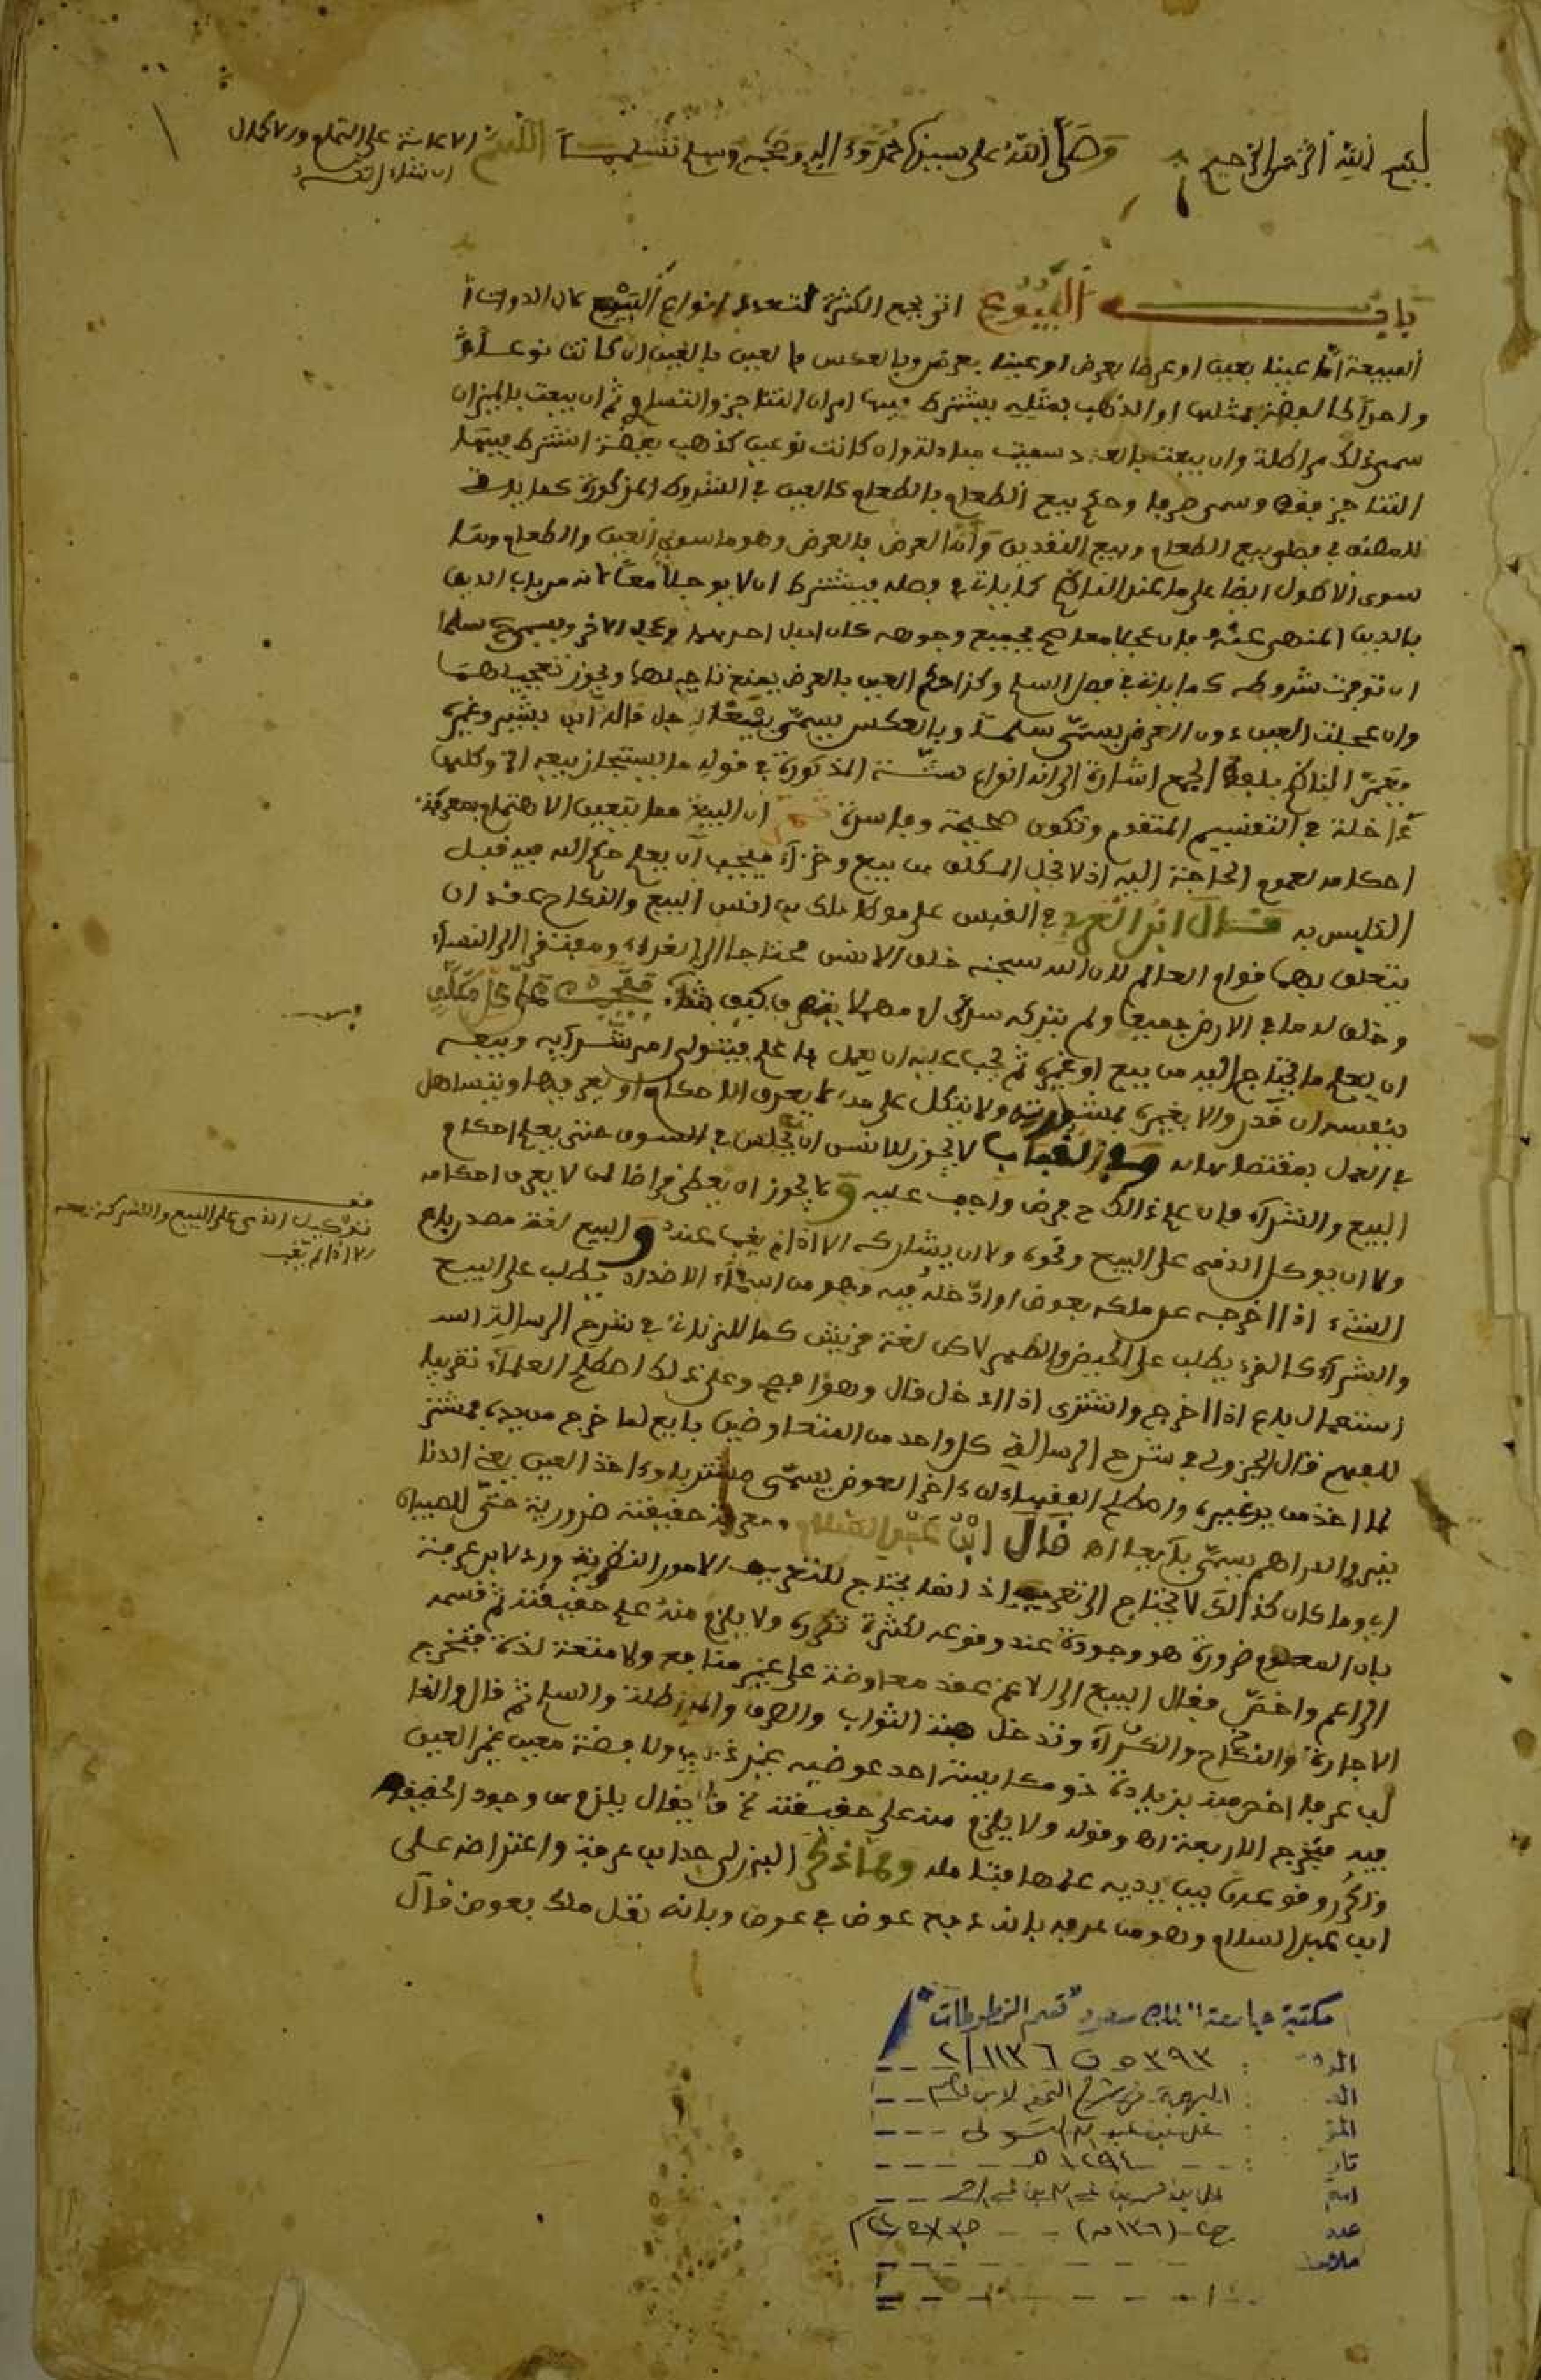 بسم الله الرحمن الرحيم وصلى الله على سيدنا محمد وءاله وصحبه وسلم تسليما اللهم الاعانة على التمام والاكمال
ان شاء الله
باب البيوع اتى بجمع الكثرة لتعدد انواع البيع لان الذوات
المبيعة اما عينا بعين او عرضا بعرض او عينا بعرض وبالعكس والعين بالعين ان كانت نوعا
واحدا كالفضة بمثلها او الذهب بمثله يشترط فيها امران التناجز والتساوي ثم ان بيعت بالميزان
سمي ذلك مراطلة وان بيعت بالعدد سميت مبادلة وان كانت نوعين كذهب بفضة اشترط فيهما
التناجز فقط وسمي صرفا وحكم بيع الطعام بالطعام كالعين في الشروط المذكورة كما ياتي
للمصنف في فصلي بيع الطعام وبيع النقدين واما العرض بالعرض وهو ما سوى العين والطعام وما
سوى الاصول ايضا على ما عند الناظم كما ياتي في فصله فيشترط ان لا يوجلا معا لانه من باب الدين
بالدين المنهي عنه فان عجلا معا صح بجميع وجوهه كان اجل احدهما وعجل الاخر ويسمى سلما
ان توفرت شروطه كما ياتي في فصل السلم وكذا حكم العين بالعرض يمنع تاجيلهما ويجوز تعجيلهما
وان عجلت العين دون العرض يسمى سلما وبالعكس يسمى بيعا لاجل قاله ابن بشير وغيره
فعبر الناظم بلفظ الجمع اشارة الى انه انواع ستة المذكورة في قوله ما يستجاز بيعه الخ وكلها
داخلة في التقسيم المتقدم وتكون صحيحة وفاسدة ثم ان البيع مما يتعين الاهتمام بمعرفة
احكامه لعموم الحاجة اليه اذ لا يخلو المكلف من بيع وشراء فيجب ان يعلم حكم الله فيه قبل
التلبس به قال ابن العربي في القبس على موطا ملك بن انس البيع والنكاح عقدان
يتعلق بهما قوام العالم لان الله سبحنه خلق الانس محتاجا الى الغذاء ومفتقرا الى النساء
وخلق له ما في الارض جميعا ولم يتركه سدى كيف شاء فيجب على كل مكلف
ان يعلم ما يحتاج اليه من بيع او غيره ثم يجب عليه ان يعمل بما علم فيتولى امر شرايه وبيعه
بنفسه ان قدر والا بغيره بمشورته ولا يتكل على من لا يعرف الاحكام او يعرفها ويتساهل
في العمل بمقتضاها لا يجوز للانس ان يجلس في السوق حتى يعلم احكام
البيع والشراء فان علم ذلك فرض واجب عليه ولا يجوز ان يعطي قراضا لمن لا يعرف احكامه
ولا ان يوكل الذمي على البيع ونحوه ولا ان يشاركه الا اذا لم يغب عنه والبيع لغة مصدر باع
الشيء اذا اخرجه عن ملكه بعوض او ادخله فيه وهو من اسماء الاضداد يطلق على البيع
والشراء كالقرء يطلق على الحيض والطهر لاكن لغة قريش كما للزناتي في شرح الرسالة
استعمال باع اذا اخرج واشترى اذا ادخل قال وهو افصح وعلى ذلك اصطلح العلماء تقريبا
للفهم قال الجزولي في شرح الرسالة كل واحد من المتعاوضين بايع لما خرج من يده مشتر
لما اخذ من يد غيره واصطلح الفقهاء ان ءاخذ العوض يسمى مشتريا وءاخذ العين يعني الدنا
نير والدراهم يسمى بايعا اه قال ابن عبد السلام ومعرفة حقيقته ضرورية حتى للصبيان
اي وما كان كذالك لا يحتاج الى تعريف اذ انما يحتاج للتعريف الامور النظرية ورده ابن عرفة
بان المعلوم ضرورة هو وجودة عند وقوعه لكثرة تكرره ولا يلزم منه علم حقيقته ثم قسمه
الى اعم واخص فقال البيع الاعم عقد معاوضة على غير منافع ولا متعة لذة فتخرج
الاجارة والنكاح والكراء وتدخل هبة الثواب والصرف والمراطلة والسلم ثم قال والغا
لب عرفا اخص منه بزيادة ذو مكايسة احد عوضيه غير ذهب ولا فضة معين غير العين
فيه فتخرج الاربعة اه وقوله ولا يلزم منه علم حقيقته قد يقال يلزم من وجود الحقيقة
وتكرر وقوعها بين يديه علمها فتامله ومما ذكر البرزلي حد ابن عرفة واعتراضه على
ابن عبد السلام وهو من عرفه بانه دفع عوض في عوض وبانه نقل ملك بعوض قال
توكيل الذمي على البيع والشركة معه
الا اذا لم يغب
مكتبة جامعة الملك سعود "قسم المخطوطات"
٥٣٩٣ ف ١١٣٦/٢
البهجة في شرح التحفة لابن عاصم
علي بن عبد السلام التسولي
١٢٩٤ هـ
عدد